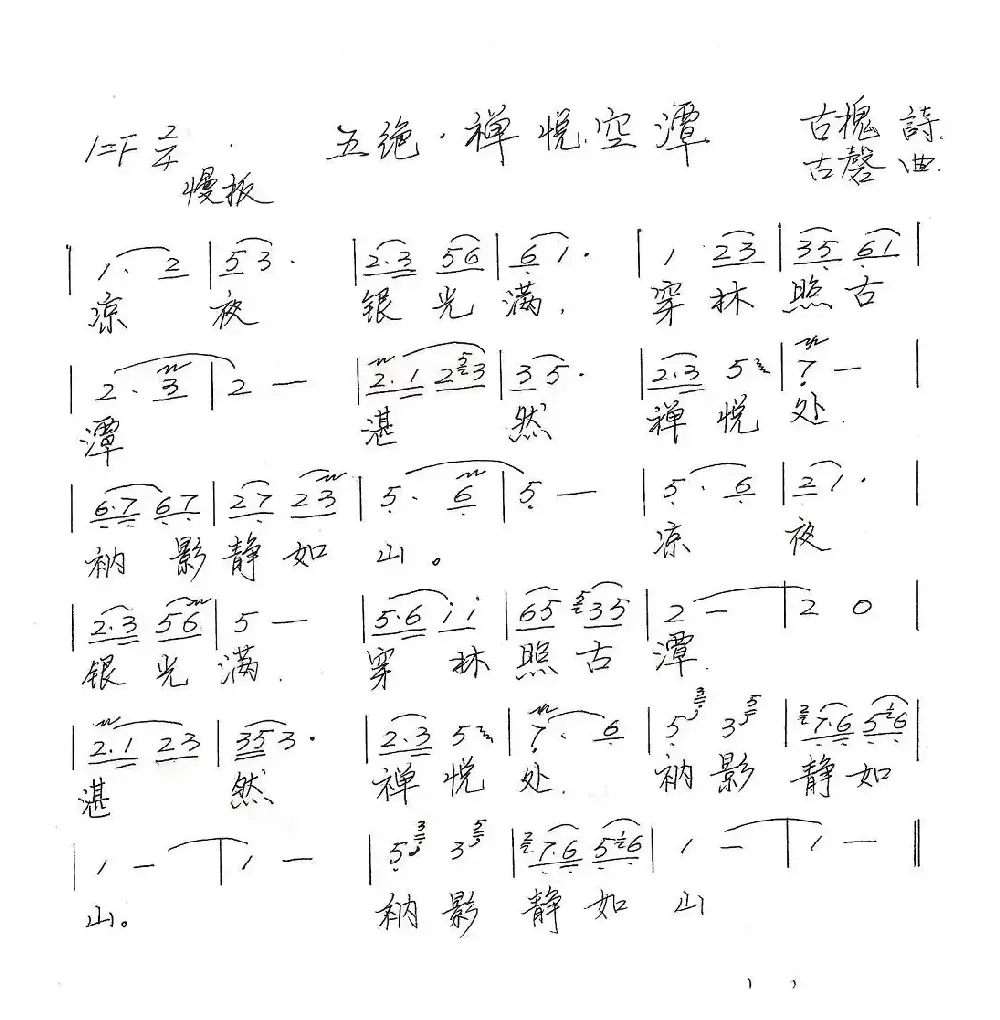 1=F 2/4 五绝·禅悦空潭 古槐 詩.
慢板 古磬 曲.
| 1· 2 | 5 3· | 2·3 56 | 6 1· | 1 23 | 35 61 |
凉 夜 银 光 满, 穿 林 照 古
| 2· 3 | 2 — | 2·1 2 5 3 | 3 5· | 2·3 5 | 7 — |
潭 湛 然 禅 悦 处.
| 6·7 67 | 27 23 | 5· 6 | 5 — | 5· 6 | 2 1· |
衲 影 静 如 山。 凉 夜
| 2·3 56 | 5 — | 5·6 i i | 65 5 35 | 2 — | 2 0 |
银 光 满. 穿 林 照 古 潭.
| 2·1 23 | 35 3· | 2·3 5 | 7· 6 | 5 3 3 5 | 2 7·6 5 1 6 |
湛 然 禅 悦 处. 衲 影 静 如
| 1 — | 1 — | 5 3 3 5 | 2 7·6 5 1 6 | 1 — | 1 — ‖
山。 衲 影 静 如 山